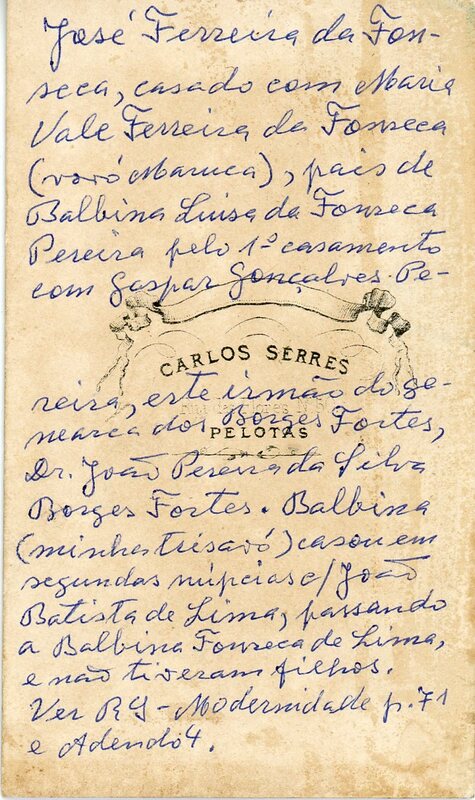 José Ferreira da Fon-
seca, casado com Maria
Vale Ferreira da Fonseca
(vovó Maruca), pais de
Balbina Luisa da Fonseca
Pereira pelo 1º casamento
com Gaspar Gonçalves Pe-
CARLOS SERRES
reira, este irmão do ge-
nearca dos Borges Fortes,
PELOTAS
Dr. João Pereira da Silva
Borges Fortes. Balbina
(minha trisavó) casou em
segundas núpcias c/ João
Batista de Lima, passando
a Balbina Fonseca de Lima,
e não tiveram filhos.
Ver RS - Modernidade p. 71
e Adendo 4.